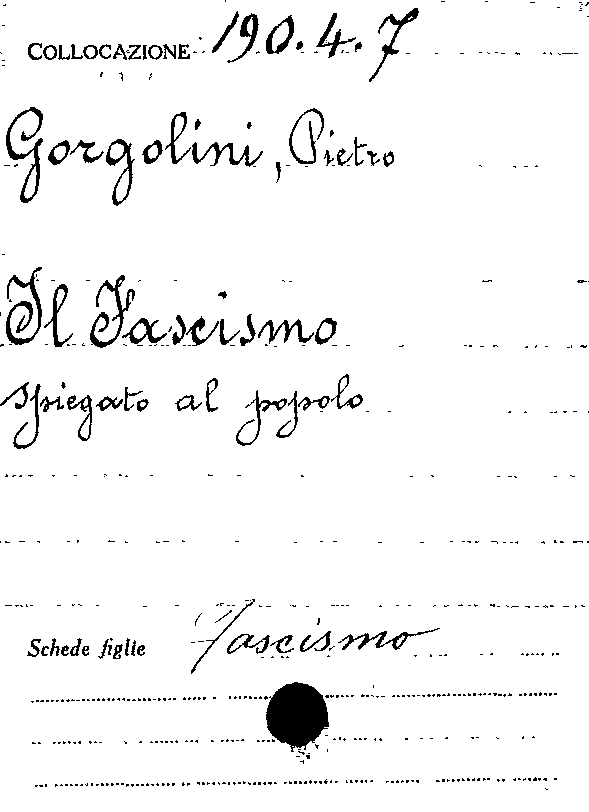 COLLOCAZIONE 190.4.7
Gorgolini, Pietro
Il Fascismo
spiegato al popolo
Schede figlie Fascismo